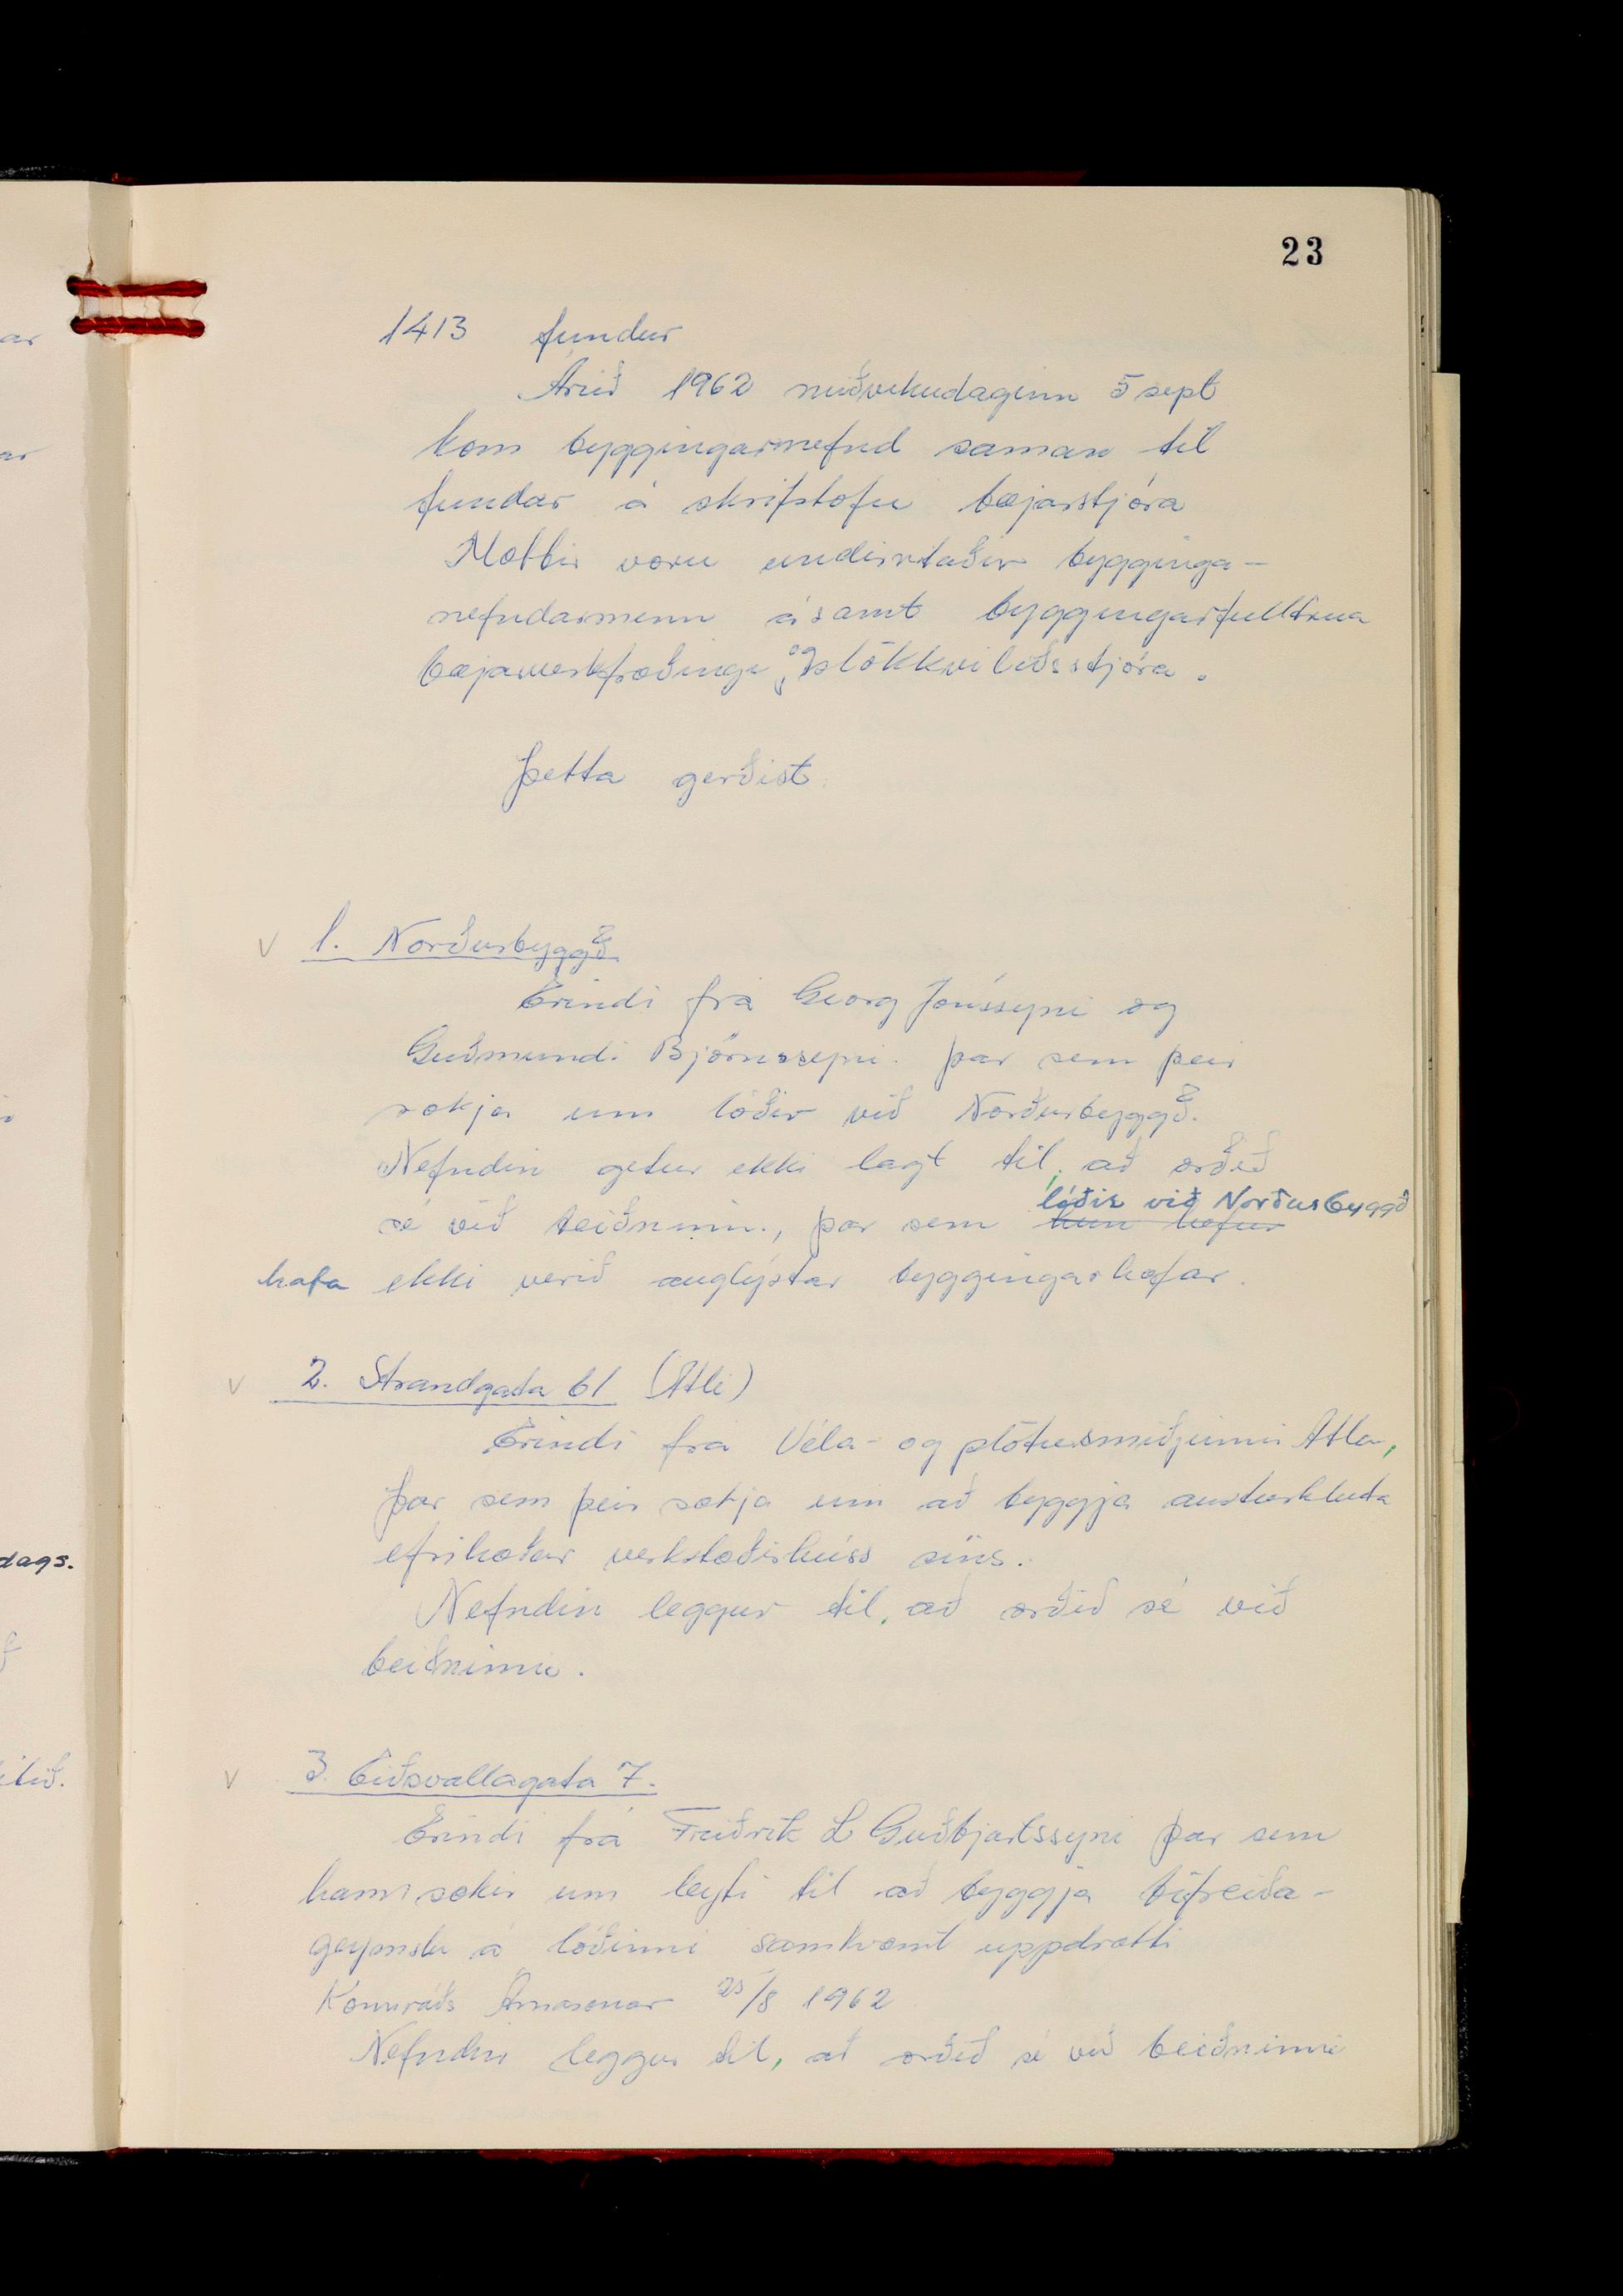 23
1413 fundur
Árið 1962 miðvikudaginn 5 sept
kom byggingarnefnd saman til
fundar á skrifstofu bæjarstjóra
Mættir voru undirritaðir bygginga-
nefndarmenn ásamt byggingarfulltrúa
bæjarverkfræðingi og slökkviliðsstjóra.
Þetta gerðist
V 1. Norðurbyggð
Erindi frá Georg Jónssyni og
Guðmundi Björnssyni. þar sem þeir
sækja um lóðir við Norðurbyggð.
Nefndin getur ekki lagt til, að orðið
lóðir við Norðurbyggð
sé við beiðninni, þar sem hún hefur
hafa ekki verið auglýstar byggingarhæfar.
V 2. Strandgata 61 (Atli)
Erindi frá Véla- og plötusmiðjunni Atla,
þar sem þeir sækja um að byggja austurhluta
efrihæðar verkstæðishúss síns.
Nefndin leggur til, að orðið sé við
beiðninni.
V 3. Eiðsvallagata 7.
Erindi frá Friðrik L Guðbjartssyni þar sem
hann sækir um leyfi til að byggja bifreiða-
geymslu á lóðinni samkvæmt uppdrætti
Konnráðs Árnasonar /8 1962
Nefndin leggur til, að orðið sé við beiðninni
ar
ar
dags.